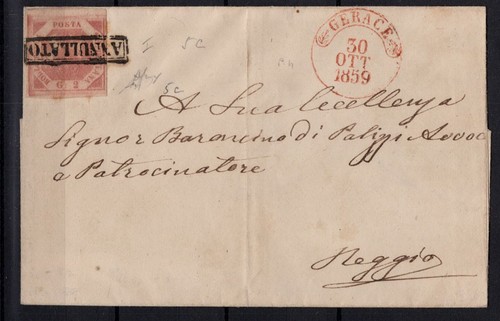 POSTA
ANNULLATO
G. 2
I 5C
5C
GERACE
30
OTT
1859
A Sua Eccellenza
Signor Baroncino di Palizzi Avvoc
e Patrocinatore
Reggio